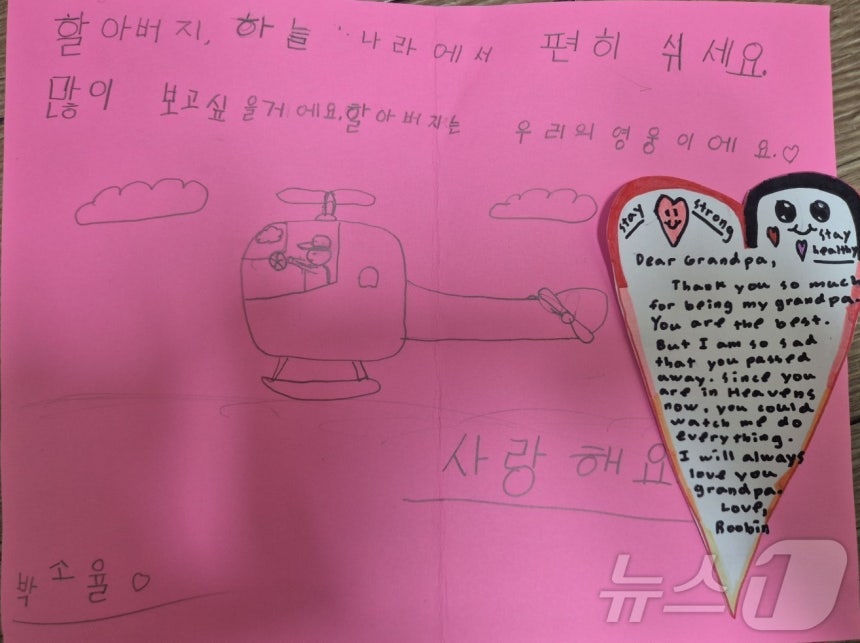 할아버지, 하늘 나라에서 편히 쉬세요.
많이 보고싶을거에요. 할아버지는 우리의 영웅이에요.♡
사랑해요
박소율 ♡
stay strong
stay healthy
Dear Grandpa,
Thank you so much
for being my grandpa.
You are the best.
But I am so sad
that you passed
away. Since you
are in Heavens
now, you could
watch me do
everything.
I will always
love you
grandpa.
Love,
Roobin
뉴스1